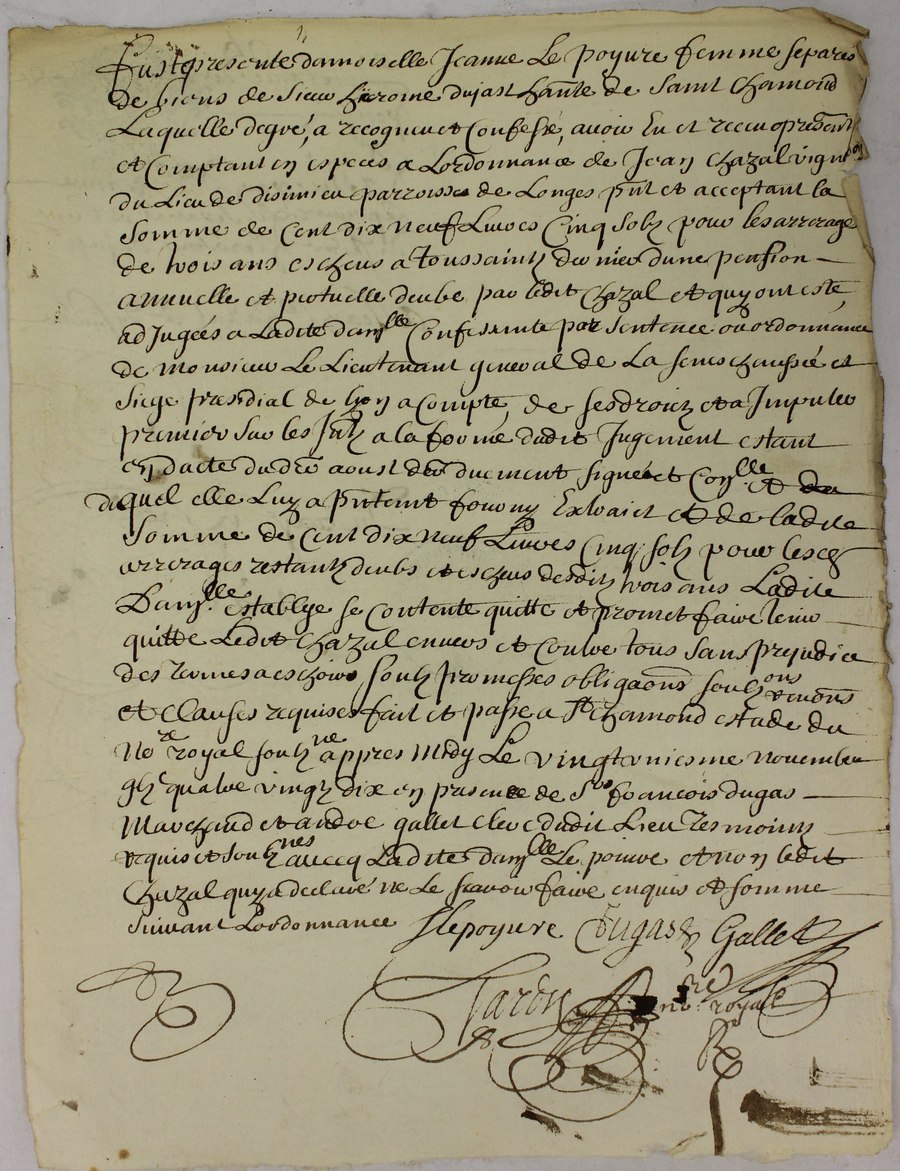 Fust presente damoiselle Jeanne Le poyvre femme separée
de biens de Sieur hierome dujast chante de Saint Chamond
Laquelle de gré, a recogneu et Confessé, avoir Eu et receu presentt
et Comptant en especes a Lordonnance de Jean Chazal vigneron
du Lieu de disimieu parroisse de Longes pnt et acceptant la
Somme de Cent dix neuf Livres Cinq Solz pour les arrerages
de trois ans escheus a toussaintz dernier dune pension
annuelle et ppetuelle deube par ledit Chazal et quy ont esté
adjugées a Ladite damlle Confessante par sentence ou ordonnance
de Monsieur Le Lieutenant general de La seneschaussée et
Siege presidial de Lyon a Compte, de ses droictz et a Imputer
premier sur les Jntz a la forme dudit Jugement estant
en dacte du aoust duement signé et Conlle et du
duquel elle Luy a pntemt fourny Extraict et de ladite
Somme de Cent dix neuf Livres Cinq Solz pour lesdz
arrerages restantz deubs et escheus desditz trois ans Ladite
Damlle establye se Contente quitte et promet faire tenir
quitte Ledit Chazal envers et Contre tous sans prejudice
des termes a eschoir soubz promesses obligaons soubzons renons
et Clauses requises fait et passé a St Chamond estude du
Nore royal soubzné appres Midy Le vingt uniesme novembre
gbjc quatre vingtz dix en presence de Sr francois dugas
Marchand et andre gallet clerc dudit Lieu tesmoins
requis et soubznés avecq Ladite damlle Le poivre et non ledit
Chazal quy a declaré ne Le scavoir faire enquis et sommé
Suivant Lordonnance J lepoyvre Dugas Gallet
Tardy nore royal